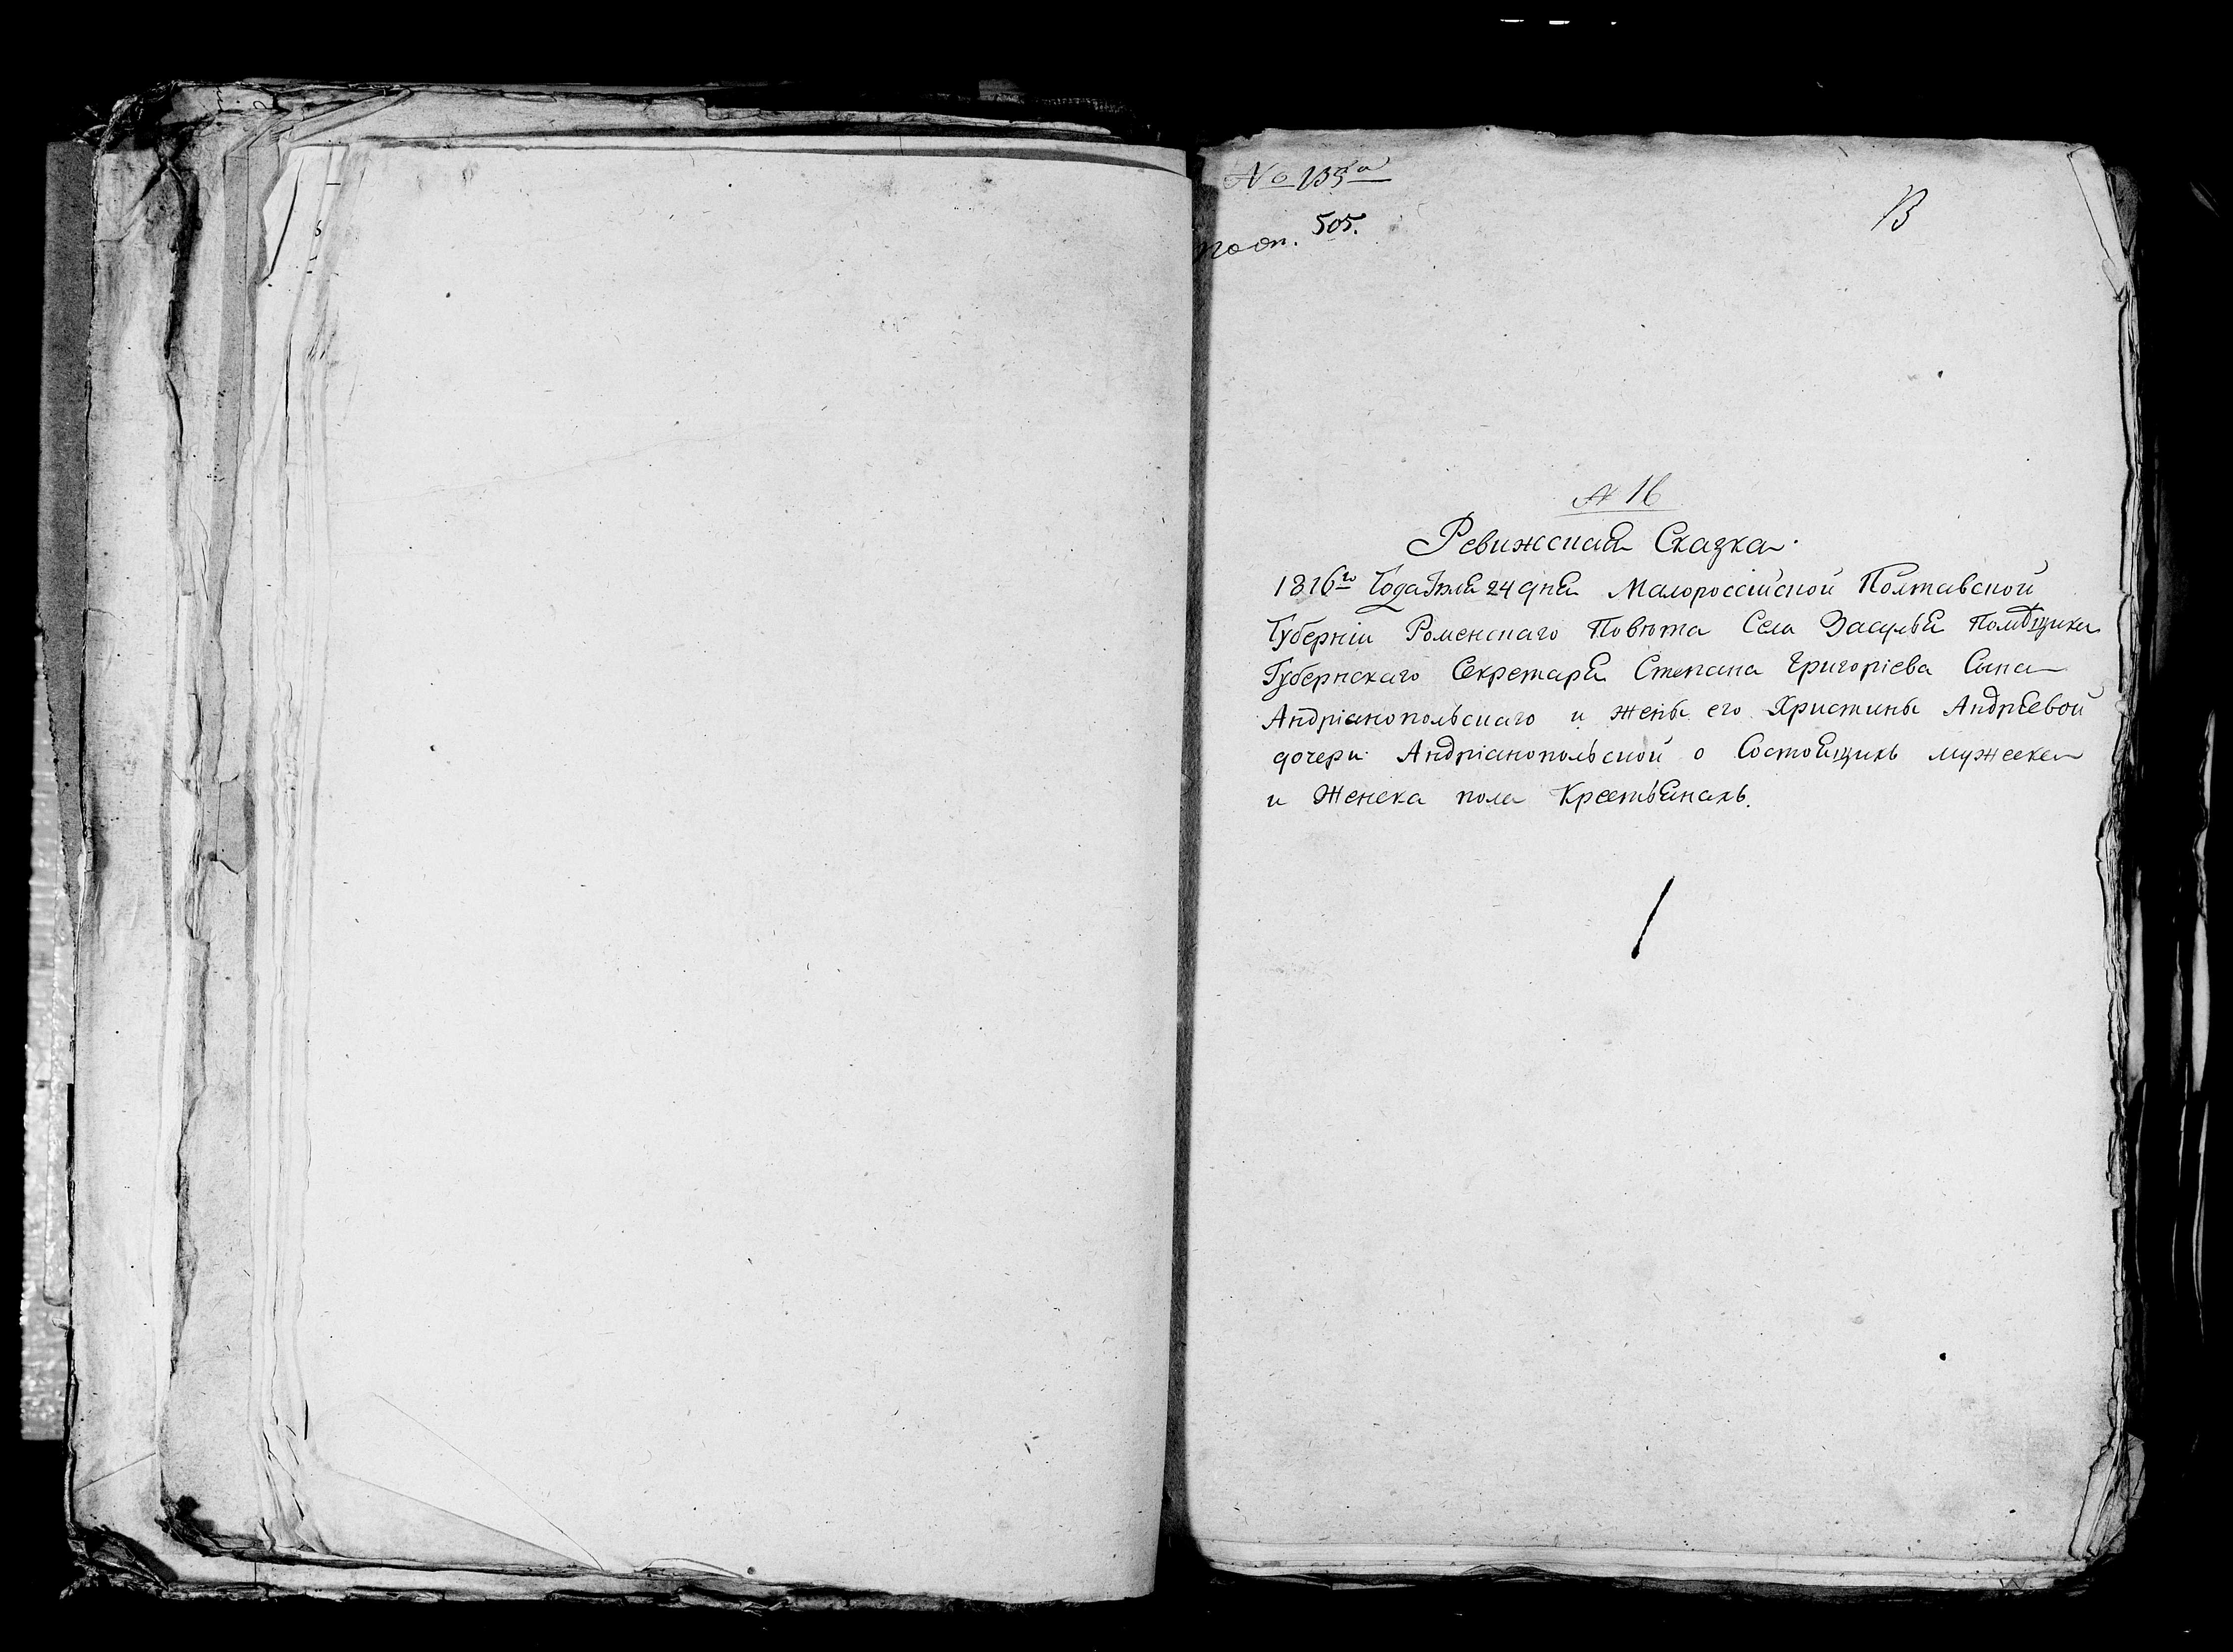 505.
по оп.
№ 16
Ревижская Сказка.
1816го Года Июля 24 дня Малороссійской Полтавской
Губерніи Роменскаго Повѣта Села Засулья Помѣщика
Губернскаго Секретаря Степана Григоріева Сына
Андріанопольскаго и жены его Христины Андрѣевой
дочери Андріанопольской о Состоящихъ мужеска
и Женска пола Крестьянахъ.